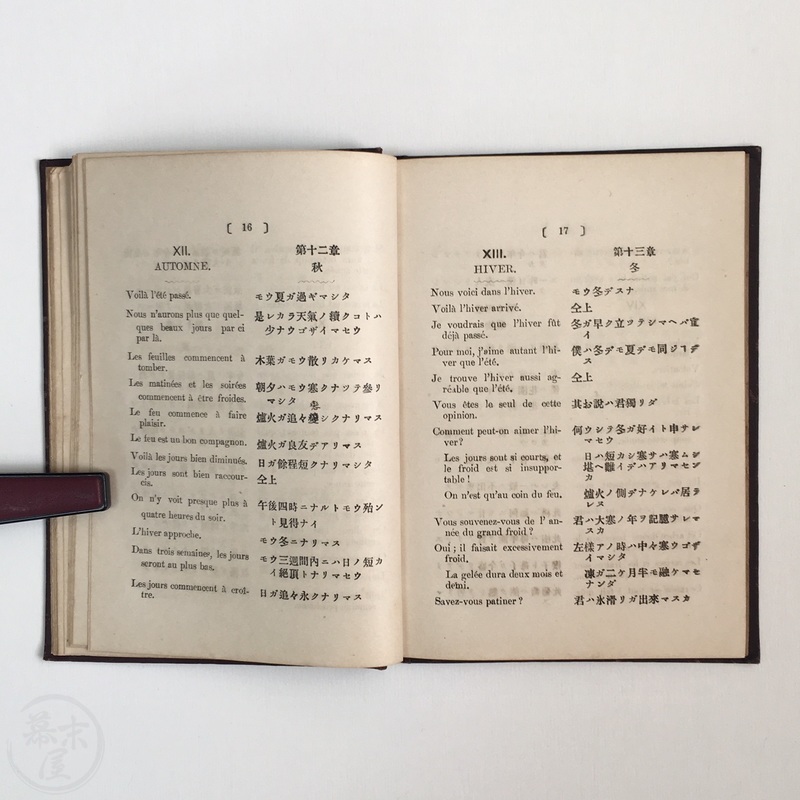 ( 16 )
XII.
AUTOMNE.
第十二章
秋
Voilà l'été passé.
モウ夏ガ過ギマシタ
Nous n'aurons plus que quel-
ques beaux jours par ci
par là.
是レカラ天氣ノ續クコトハ
少ナウゴザイマセウ
Les feuilles commencent à
tomber.
木葉ガモウ散リカケマス
Les matinées et les soirées
commencent à être froides.
朝夕ハモウ寒クナツテ參リ
マシタ
Le feu commence à faire
plaisir.
爐火ガ追々戀シクナリマス
Le feu est un bon compagnon.
爐火ガ良友デアリマス
Voilà les jours bien diminués.
日ガ餘程短クナリマシタ
Les jours sont bien raccour-
cis.
仝上
On n'y voit presque plus à
quatre heures du soir.
午後四時ニナルトモウ殆ン
ト見得ナイ
L'hiver approche.
モウ冬ニナリマス
Dans trois semaines, les jours
seront au plus bas.
モウ三週間內ニハ日ノ短カ
イ絕頂トナリマセウ
Les jours commencent à croî-
tre.
日ガ追々永クナリマス
( 17 )
XIII.
HIVER.
第十三章
冬
Nous voici dans l'hiver.
モウ冬デスナ
Voilà l'hiver arrivé.
仝上
Je voudrais que l'hiver fût
déjà passé.
冬ガ早ク立ツテシマヘバ宜
イ
Pour moi, j'aime autant l'hi-
ver que l'été.
僕ハ冬デモ夏デモ同ジヿデ
ス
Je trouve l'hiver aussi ag-
réable que l'été.
仝上
Vous êtes le seul de cette
opinion.
其お說ハ君獨リダ
Comment peut-on aimer l'hi-
ver?
何ウシテ冬ガ好イト申サレ
マセウ
Les jours sout si courts, et
le froid est si insuppor-
table!
日ハ短カシ寒サハ寒ムシ
堪ヘ難イデハアリマセン
カ
On n'est qu'au coin du feu.
爐火ノ側デナケレバ居ラ
レヌ
Vous souvenez-vous de l' an-
née du grand froid?
君ハ大寒ノ年ヲ記臆サレマ
スカ
Oui; il faisait excessivement
froid.
左樣アノ時ハ中々寒ウゴザ
イマシタ
La gelée dura deux mois et
demi.
凍ガ二ケ月半モ融ケマセ
ナンダ
Savez-vous patiner?
君ハ氷滑リガ出來マスカ
幕末屋